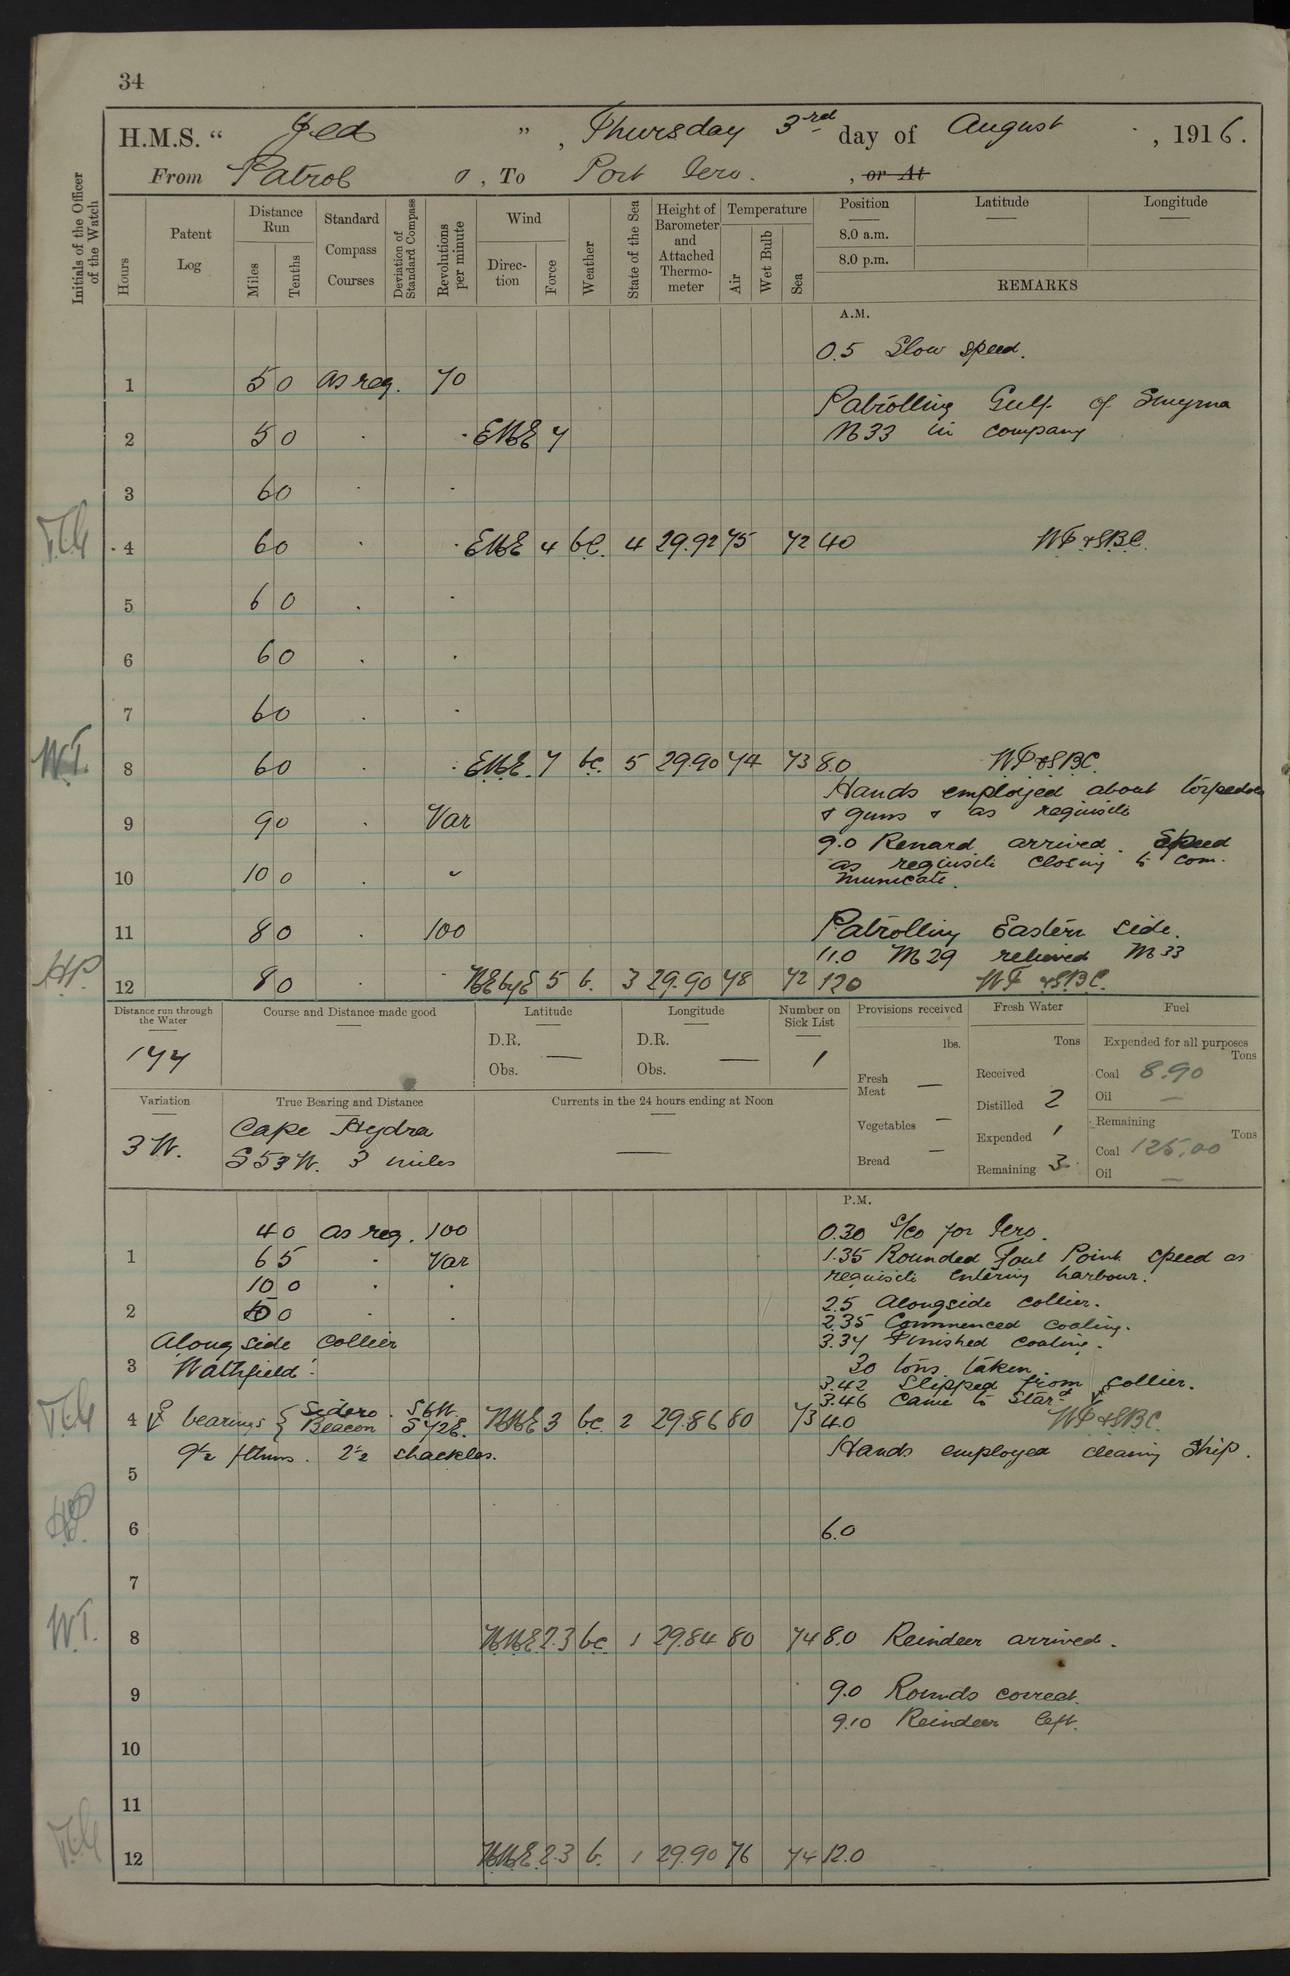 34
H.M.S. “ Jed ” , Thursday 3rd day of August , 1916.
From Patrol , To Port Iero. , or At
Initials of the Officer of the Watch
Hours
Patent Log
Distance Run
Miles
Tenths
Standard Compass Courses
Deviation of Standard Compass
Revolutions per minute
Wind
Direction
Force
Weather
State of the Sea
Height of Barometer and Attached Thermometer
Temperature
Air
Wet Bulb
Sea
Position
Latitude
Longitude
8.0 a.m.
8.0 p.m.
REMARKS
A.M.
0.5 Slow speed.
1 5 0 as req. 70
Patrolling Gulf of Smyrna
2 5 0 . . 7 M33 in company
3 6 0 . .
4 6 0 . . 4 bc. 4 29.92 75 72 4.0 WT & SBC.
5 6 0 . .
6 6 0 . .
7 6 0 . .
W.T. 8 6 0 . . 7 bc. 5 29.90 74 73 8.0 WT & SBC.
Hands employed about torpedoes
9 9 0 . Var & guns & as requisite
9.0 Renard arrived. Speed
as requisite closing to com-
10 10 0 . municate.
11 8 0 . 100 Patrolling Eastern side.
11.0 M29 relieved M33
12 8 0 . . NE by E 5 b. 3 29.90 78 72 12.0 WT & SBC.
Distance run through the Water
Course and Distance made good
Latitude
Longitude
Number on Sick List
Provisions received
Fresh Water
Fuel
177
D.R.
Obs. —
D.R.
Obs. —
1
lbs.
Fresh Meat —
Vegetables —
Bread —
Tons
Received
Distilled 2
Expended 1
Remaining 3
Expended for all purposes
Tons
Coal 8.90
Oil —
Remaining
Tons
Coal 125.00
Oil —
Variation
True Bearing and Distance
Currents in the 24 hours ending at Noon
3 W.
Cape Hydra
S 53 W. 3 miles
—
P.M.
4 0 as req. 100 0.30 S/co for Iero.
1 6 5 . Var 1.35 Rounded Foul Point speed as
10 0 . . requisite entering harbour.
2 0 . . 2.5 Alongside collier.
2.35 Commenced coaling.
Alongside collier 3.37 Finished coaling.
3 30 tons taken.
3.42 Slipped from collier.
Sidero 3.46 Came to Starbd
4 bearings { Beacon S 72 E. NNE 3 bc 2 29.86 80 73 4.0 WT & SBC
9½ fthms. 2½ shackles. Hands employed cleaning Ship.
5
6 6.0
7
W.T. 8 NNE 2.3 bc 1 29.84 80 74 8.0 Reindeer arrived.
9 9.0 Rounds correct.
9.10 Reindeer left.
10
11
12 NNE 2.3 b. 1 29.90 76 74 12.0